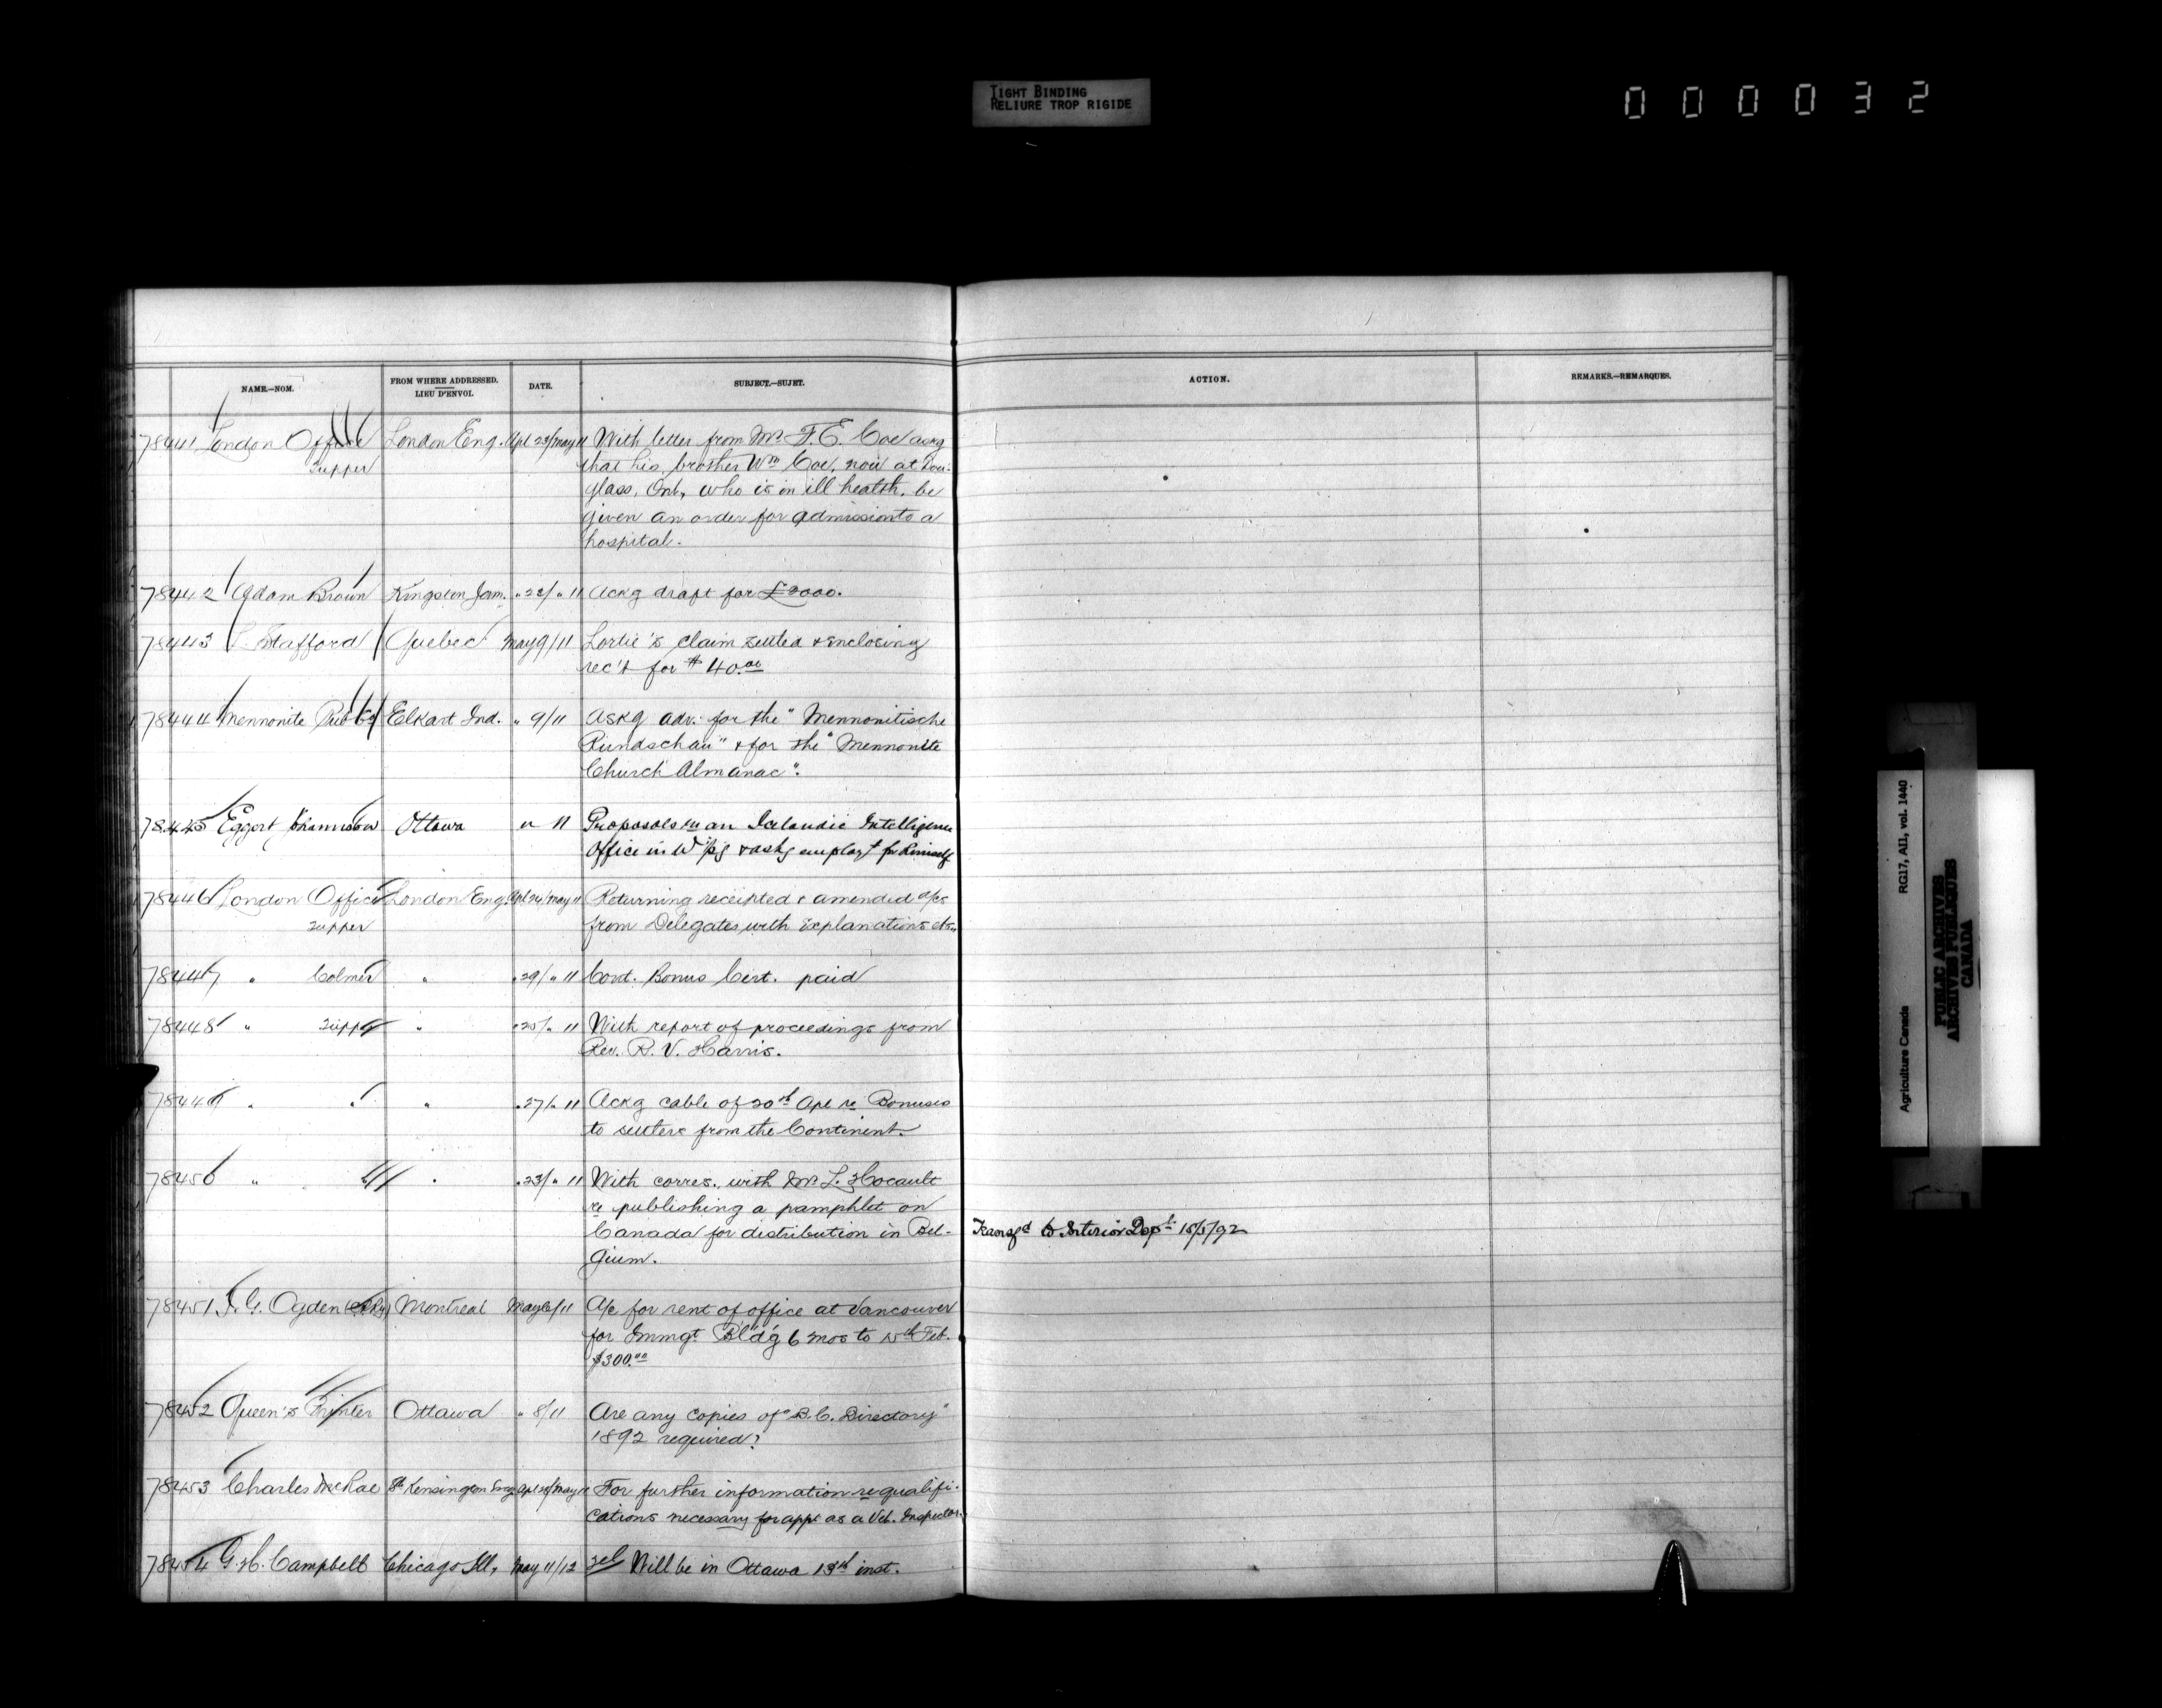 TIGHT BINDING
RELIURE TROP RIGIDE
000032
NAME.—NOM.
FROM WHERE ADDRESSED.
LIEU D'ENVOI.
DATE.
SUBJECT.—SUJET.
ACTION.
REMARKS.—REMARQUES.
78441 London Office London Eng. Apl 23/May 11 With letter from Mr. F. E. Coe askg
Tupper that his brother Wm Coe, now at Dou-
glass, Ont, who is in ill health, be
given an order for admission to a
hospital.
78442 Adam Brown Kingston Jam. " 22/ " 11 Ackg draft for £2000.
78443 L. Stafford Quebec May 9/11 Lortie's claim settled & enclosing
rec't for $40.00
78444 Mennonite Pub Co Elkart Ind. " 9/11 Askg adv. for the "Mennonitische
Rundschau" & for the "Mennonite
Church Almanac".
78445 Eggert Johannson Ottawa " 11 Proposals re an Icelandic Intelligence
Office in W'pg & askg employt for himself
78446 London Office London Eng. Apl 24/May 11 Returning receipted & amended a/cs
Tupper from Delegates with explanations etc.
78447 " Colmer " " 29/ " 11 Cont. Bonus Cert. paid
78448 " Tupper " " 25/ " 11 With report of proceedings from
Rev. R. V. Harris.
78449 " " " " 27/ " 11 Ackg cable of 20th Apl re Bonuses
to settlers from the Continent.
78450 " " " " 23/ " 11 With corres. with Mr. L. Hocault
re publishing a pamphlet on
Canada for distribution in Bel- Transfd to Interior Dept 15/5/92
gium.
78451 I. G. Ogden Montreal May 6/11 A/c for rent of office at Vancouver
for Immgt Bld'g 6 mos to 15th Feb.
$300.00
78452 Queen's Printer Ottawa " 8/11 Are any copies of "B.C. Directory"
1892 required?
78453 Charles McRae Sth Kensington Eng Apl /May 11 For further information re qualifi-
cations necessary for appt as a Vet. Inspector.
78454 G. H. Campbell Chicago Ill, May 11/12 Tel Will be in Ottawa 13th inst.
Agriculture Canada RG17, AI1, vol. 1440
PUBLIC ARCHIVES
ARCHIVES PUBLIQUES
CANADA